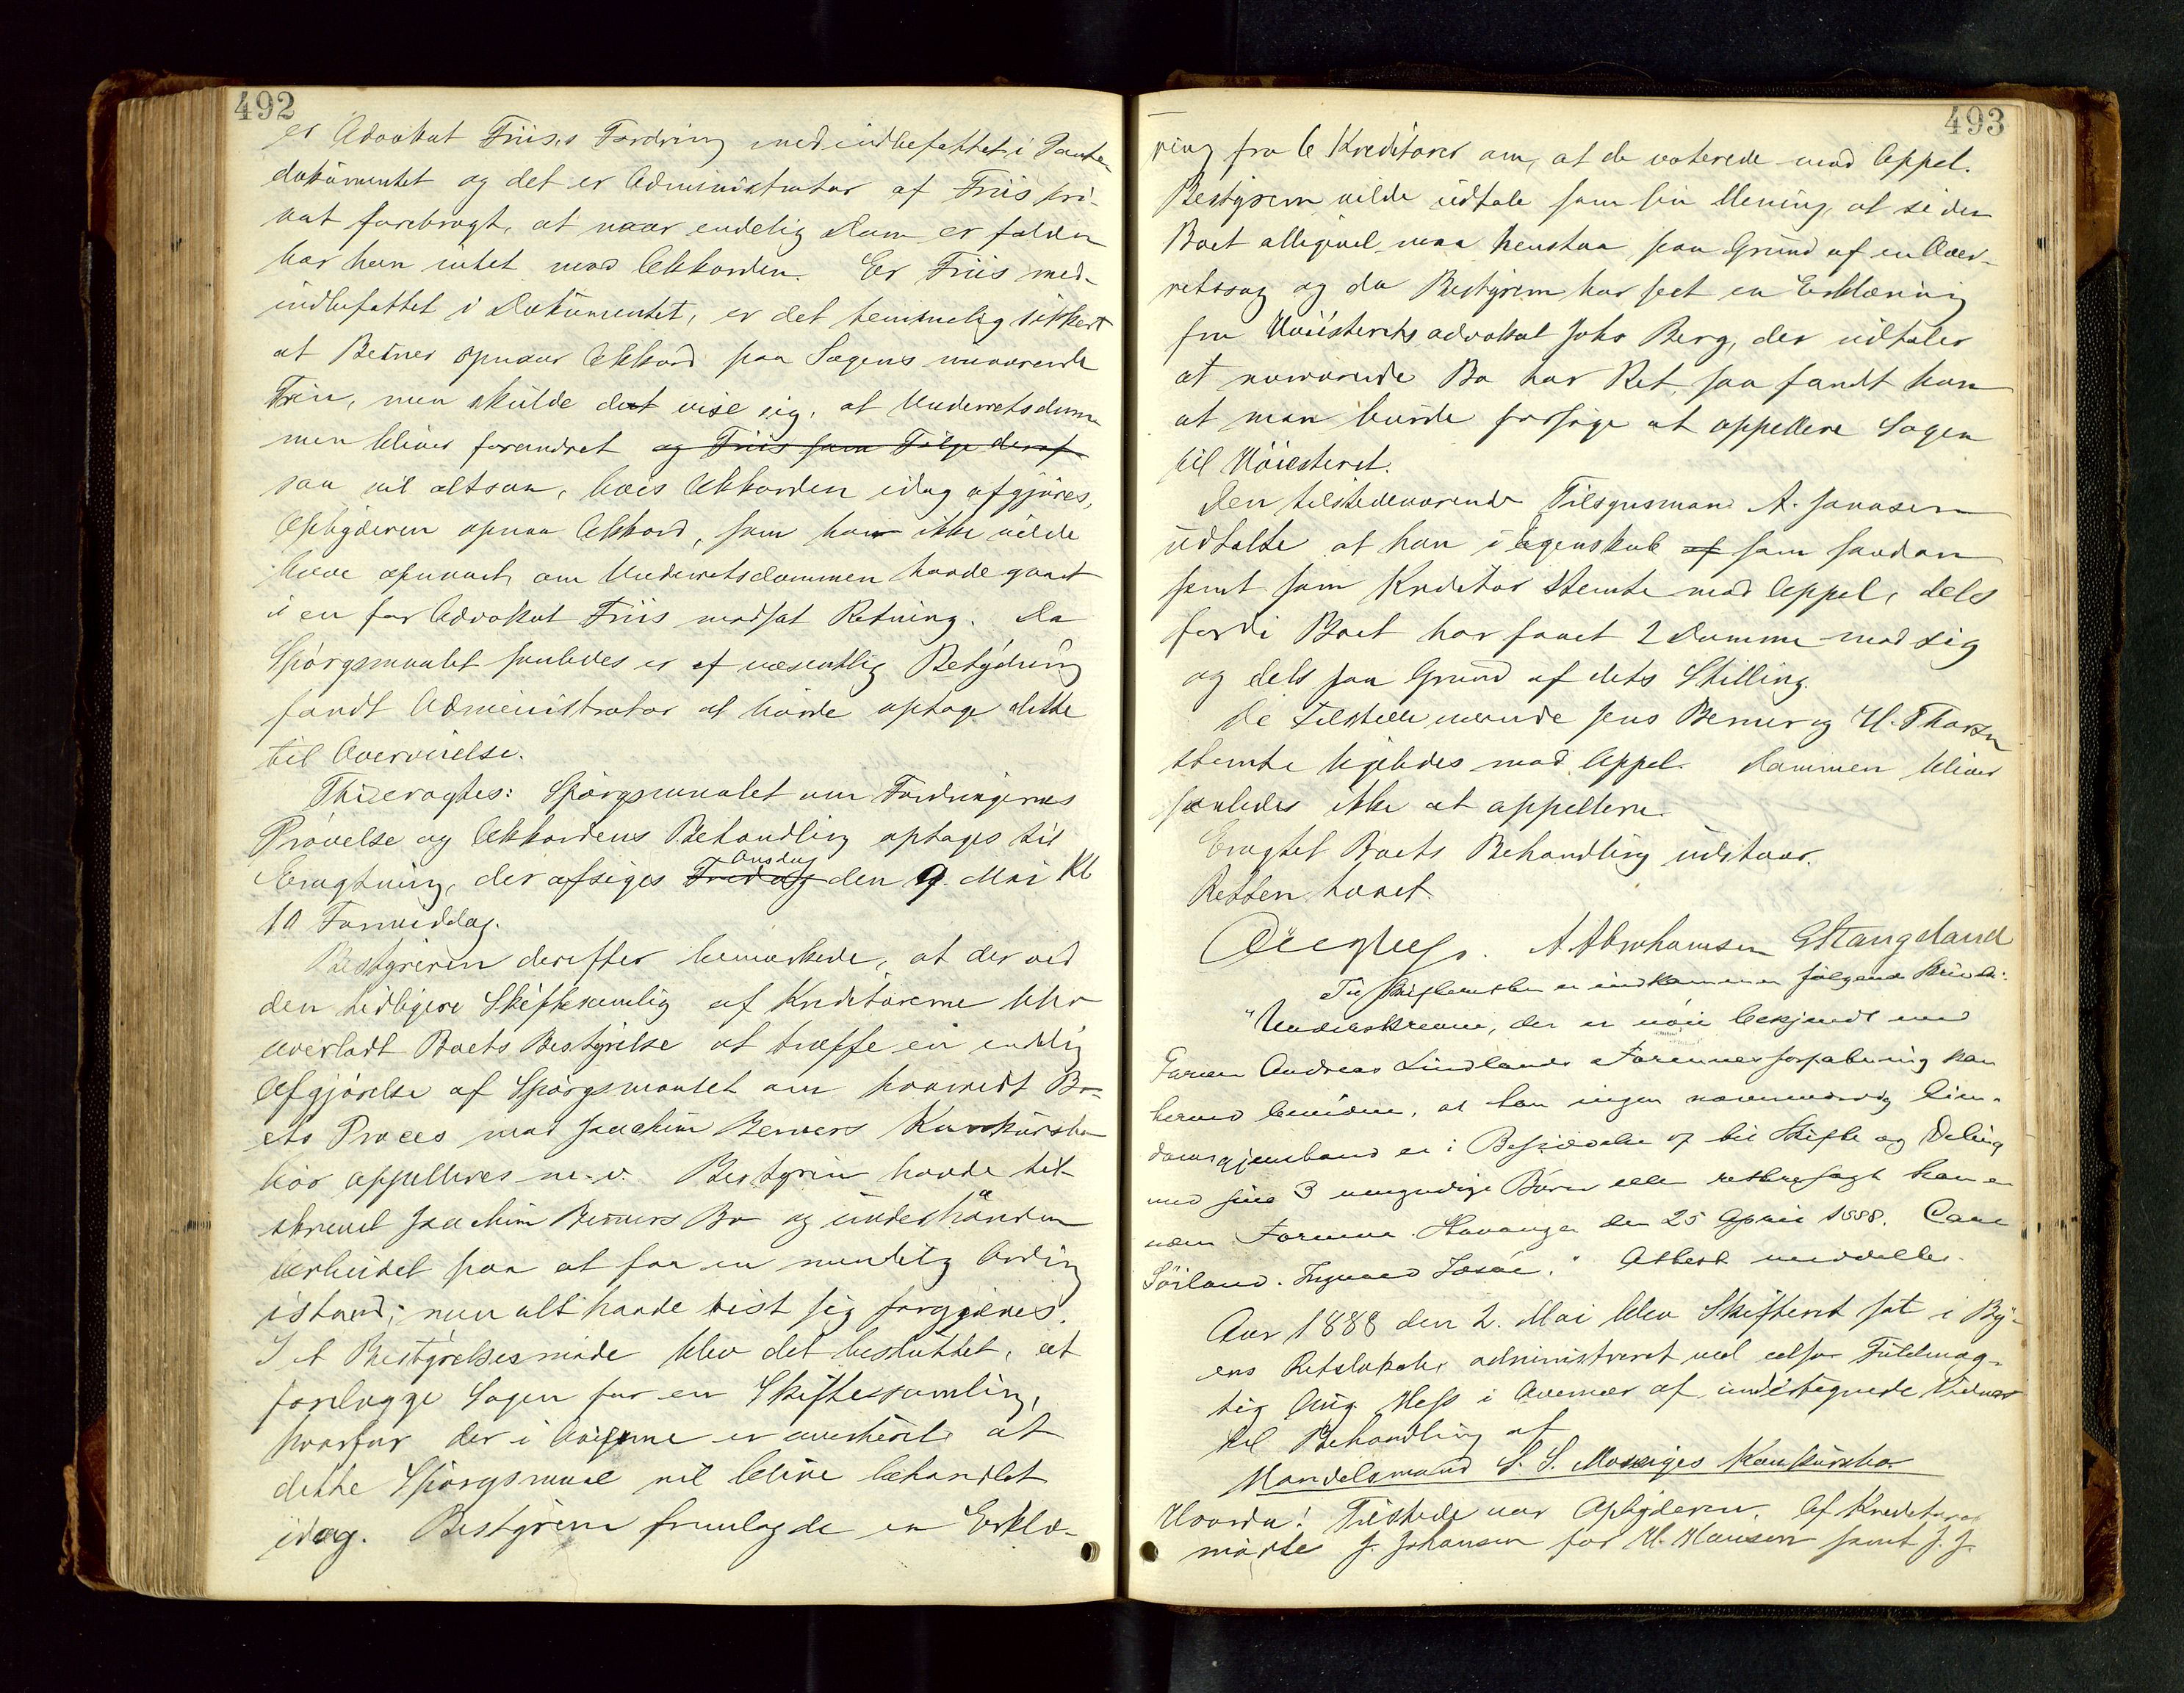 492
er Advokat Friis's Fordring med indbefattet i Pante
dokumentet og det er Administrator af Friis pri-
vat forebragt, at naar endelig Dom er falden
har han intet mod Akkorden. Er Friis med-
indbefattet i Dokumentet, er det temmelig sikkert
at Berner opnaar Akkord paa Sagens nuværende
Trin, men skulde det vise sig, at Underretsdom
men bliver forandret og Friis som Følge deraf
saa vil altsaa, hvis Akkorden idag afgjøres,
Opbyderen opnaa Akkord, som han ikke vilde
have opnaaet, om Underretsdommen havde gaaet
i en for Advokat Friis modsat Retning. Da
Spørgsmaalet saaledes er af væsentlig Betydning
fandt Administrator at burde optage dette
til Overveielse.
Thi eragtes: Spørgsmaalet om Fordringernes
Prøvelse og Akkordens Behandling optages til
Eragtning, der afsiges Fredag Onsdag den 9. Mai Kl
10 Formiddag.
Bestyreren derefter bemærkede, at der ved
den tidligere Skiftesamling af Kreditorerne blev
overladt Boets Bestyrelse at træffe en endelig
Afgjørelse af Spørgsmaalet om hvorvidt Bo-
ets Proces mod Joachim Berners Konkursbo
bør appelleres m. v. Bestyren havde til-
skrevet Joachim Berners Bo og underhaanden
arbeidet paa at faa en mindelig Ordning
istand; men alt havde vist sig forgjæves.
I et Bestyrelsesmøde blev det besluttet, at
forelægge Sagen for en Skiftesamling,
hvorfor der i Aviserne er averteret at
dette Spørgsmaal vil blive behandlet
idag. Bestyreren fremlagde en Erklæ-
493
ring fra 6 Kreditorer om, at de voterede mod Appel.
Bestyreren vilde udtale som sin Mening, at siden
Boet alligevel maa henstaa paa Grund af en Over-
retssag og da Bestyreren har seet en Erklæring
fra Høiesteretsadvokat Johs Berg, der udtaler
at nærværende Bo har Ret, saa fandt han
at man burde forsøge at appellere Sagen
til Høiesteret.
Den tilstedeværende Tilsynsmand A. Janasen
udtalte at han i Egenskab af som saadan
samt som Kreditor stemte mod Appel, dels
fordi Boet har faaet 2 Domme mod sig
og dels paa Grund af dets Stilling.
De tilstedeværende Jens Berner og H. Thorsen
stemte ligeledes mod Appel. Dommen bliver
saaledes ikke at appellere.
Eragtet Boets Behandling udstaar.
Retten hævet.
A Abrahamsen GStangeland
Til Skifteretten er indkommen følgende Skrivelse:
"Underskrevne, der er nøie bekjendt med
Enemand Andreas Lindlands Formuesforfatning kan
herved bevidne, at han ingen nævneværdig Eien-
domsgjenstand er i Besiddelse af til Skifte og Deling
med sine 3 umyndige Børn eller retteresagt han er
uden Formue. Stavanger den 25 April 1888. Carl
Søiland. Ingvard Isdø." Attest meddeltes.
Aar 1888 den 2. Mai blev Skifteret sat i By-
ens Retslokale administreret ved edsv. Fuldmæg-
tig Aug. Hess i Overvær af undertegnede Vidner
til Behandling af
Handelsmand S. S. Mossiges Konkursbo
Hvorda! Tilstede var Opbyderen. Af Kreditorer
mødte J. Johansen for H. Hansen samt J. J.